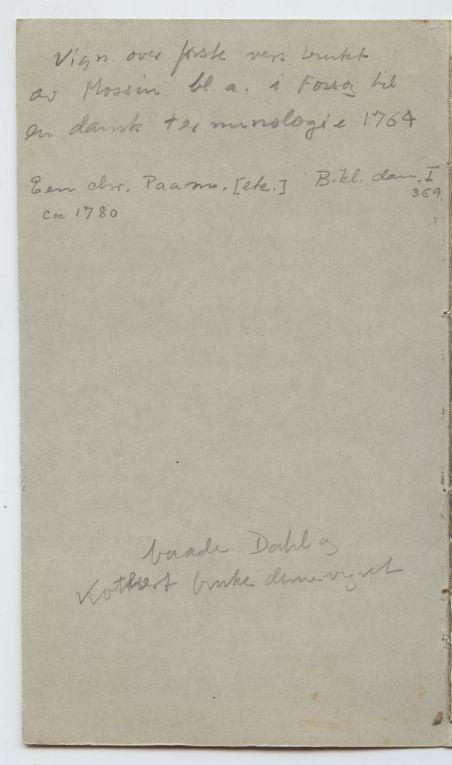 Vign. over første vers brukt
av Mossin bl. a. i Forsøg til
en dansk terminologie 1764
Een chr. Paami. [etc.] Bibl. dan. I
369.
ca 1780
baade Dahl og
Kothert bruke denne vignet